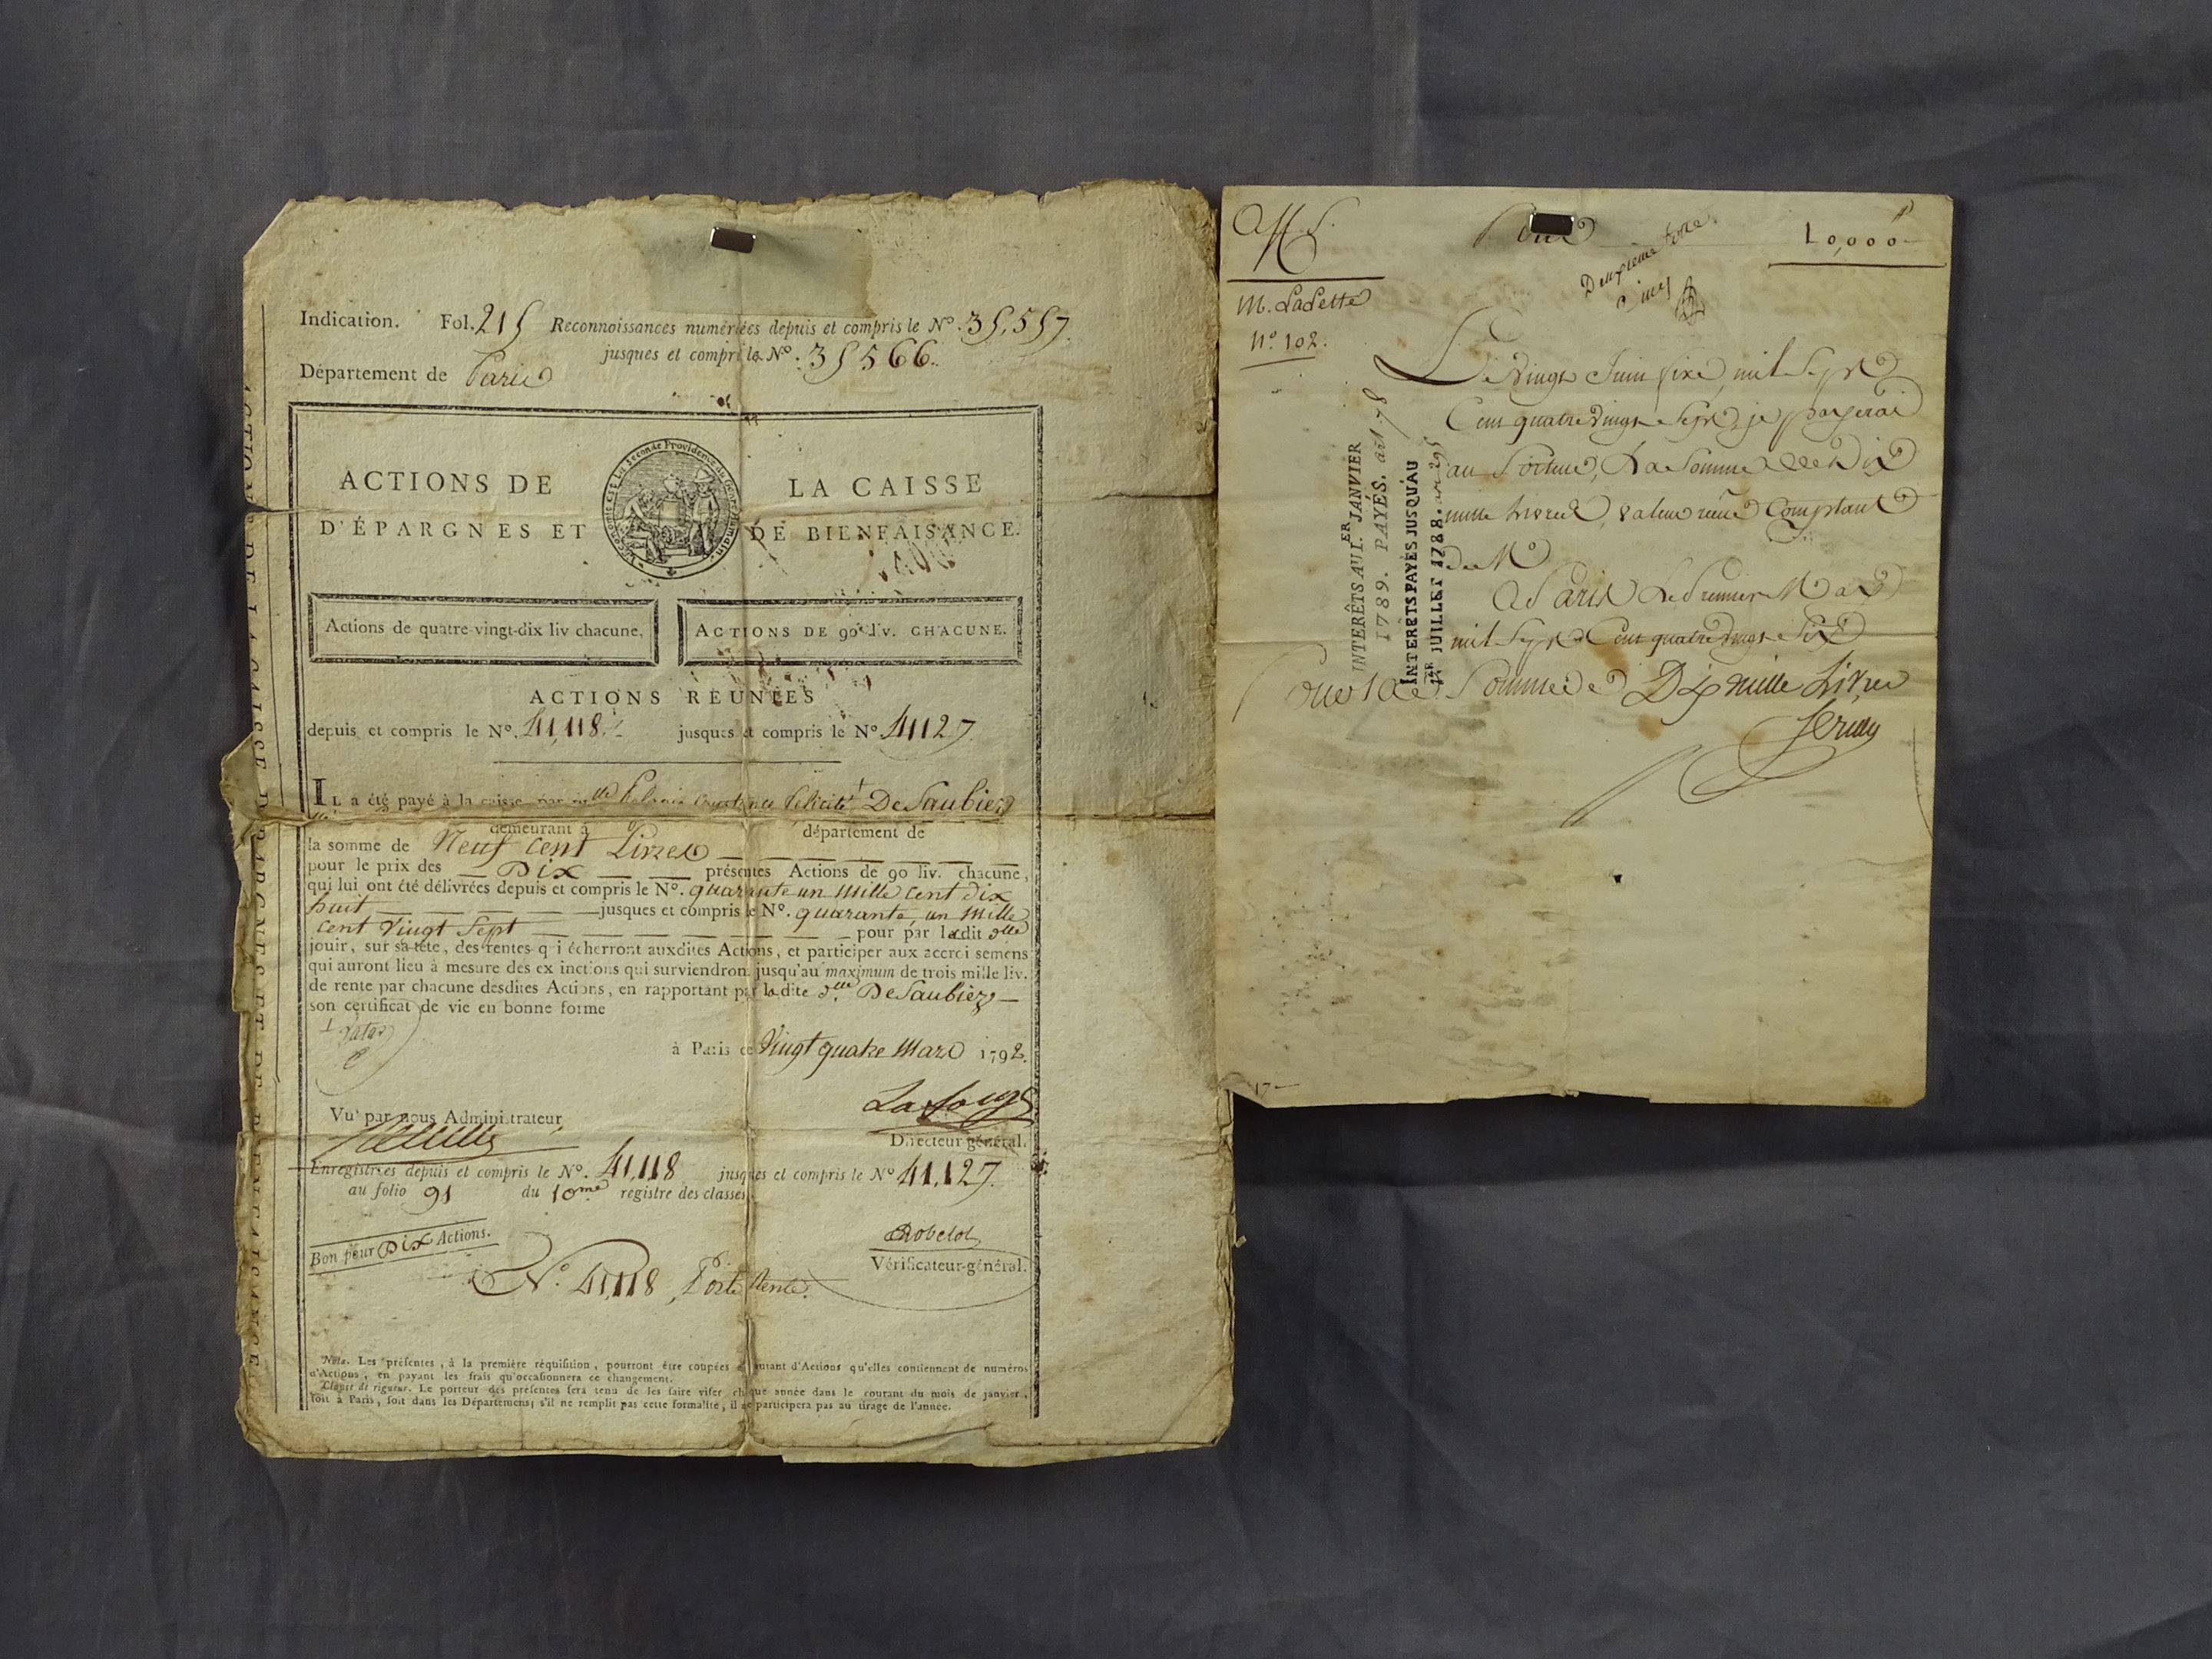 Indication. Fol. 215 Reconnoissances numérotées depuis et compris le Nº. 35,557.
jusques et compris le Nº. 35566.
Département de Paris
ACTIONS DE LA CAISSE
D'ÉPARGNES ET DE BIENFAISANCE.
L'économie est la Seconde Providence du Genre Humain.
Actions de quatre-vingt-dix liv chacune.
ACTIONS DE 90 LIV. CHACUNE.
ACTIONS RÉUNIES
depuis et compris le Nº. 41,118. jusques et compris le Nº 41127.
IL a été payé à la caisse par Mlle Félicité De Saubiez
demeurant à département de
la somme de Neuf Cent Livres
pour le prix des Dix présentes Actions de 90 liv. chacune,
qui lui ont été délivrées depuis et compris le Nº. quarante un mille cent dix
huit jusques et compris le Nº. quarante un mille
cent vingt sept pour par ladit dlle
jouir, sur sa tête, des rentes qui écherront auxdites Actions, et participer aux accroissemens
qui auront lieu à mesure des extinctions qui surviendront jusqu'au maximum de trois mille liv.
de rente par chacune desdites Actions, en rapportant par ladite dlle De Saubiez
son certificat de vie en bonne forme
à Paris ce Vingt quatre Mars 1792.
Vu par nous Administrateur
Lafarge
Directeur général.
Enregistrées depuis et compris le Nº. 41,118 jusques et compris le Nº 41,127.
au folio 91 du 10me registre des classes.
Bon pour Dix Actions.
Robelot
Vérificateur-général.
Nº. 41,118, Porte Rente.
Nota. Les présentes, à la première réquisition, pourront être coupées en autant d'Actions qu'elles contiennent de numéros
d'Actions, en payant les frais qu'occasionnera ce changement.
Clause de rigueur. Le porteur des présentes sera tenu de les faire viser chaque année dans le courant du mois de janvier,
soit à Paris, soit dans les Départemens; s'il ne remplit pas cette formalité, il ne participera pas au tirage de l'année.
ACTIONS DE LA CAISSE D'ÉPARGNES ET DE BIENFAISANCE
10,000
Deuxieme
M. LaLette
nº. 102.
Le Vingt Juin fixe, mil Sept
Cent quatre Vingt Sept, je payerai
au Porteur, La Somme de Dix
mille Livres, valeur reçue Comptant
du Mº
A Paris Le Premier Mars
mil Sept Cent quatre Vingt Six
Pour la Somme de Dix mille Livres
INTERÊTS AU 1.ER JANVIER
1789. PAYÉS.
INTERÊTS PAYÉS JUSQU'AU
1ER JUILLET 1788.